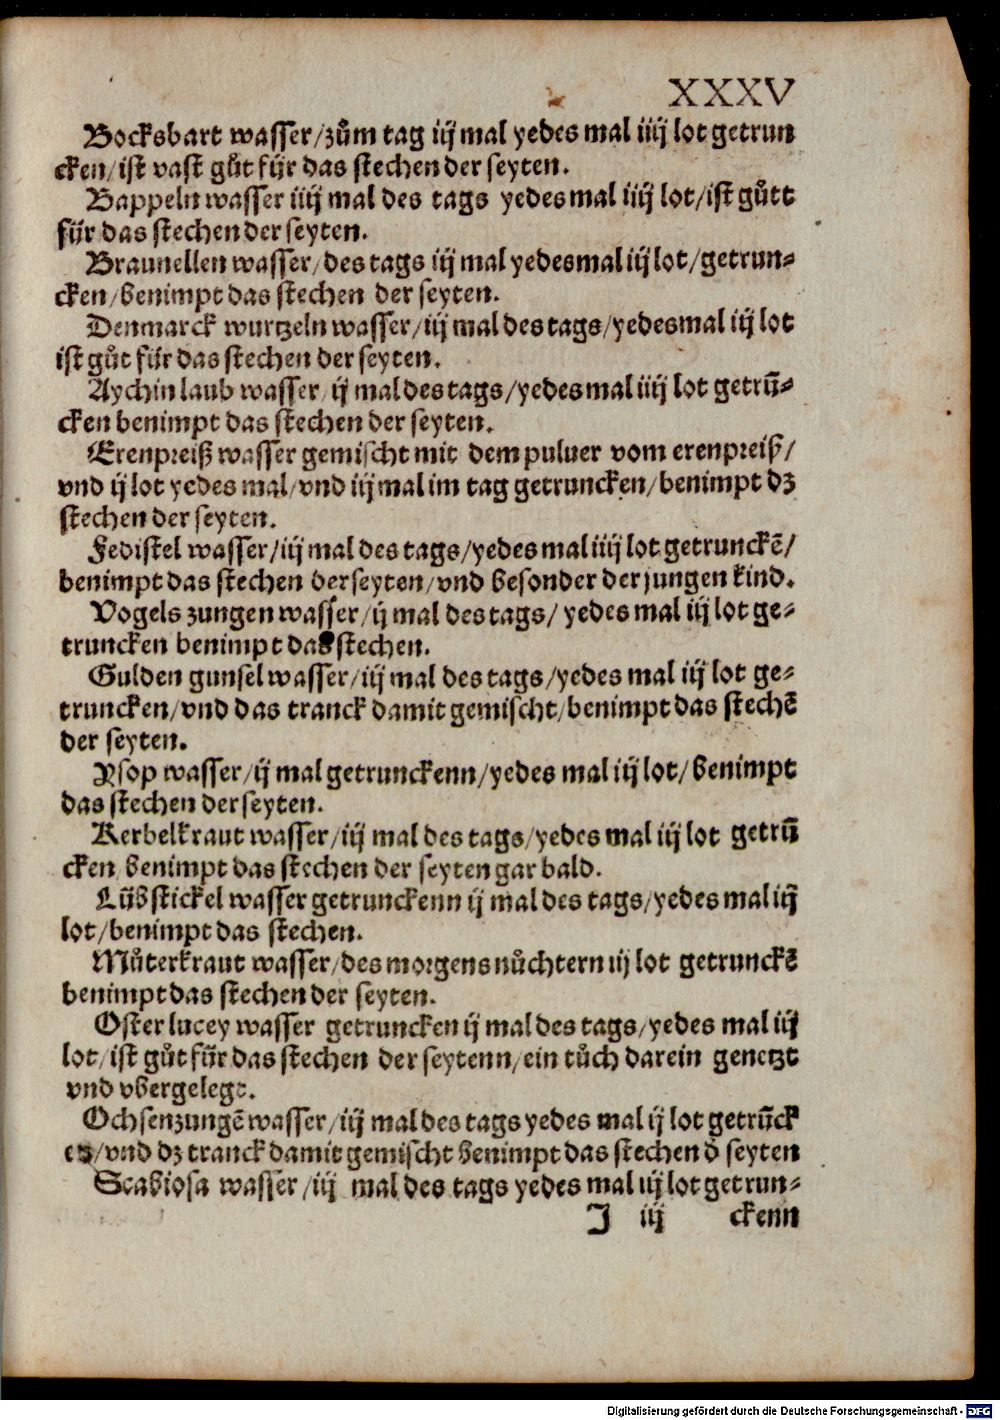 XXXV
Bocksbart wasser/zům tag iij mal yedes mal iiij lot getrun
cken/ist vast gůt für das stechen der seyten.
Bappeln wasser iiij mal des tags yedes mal iiij lot/ist gůtt
für das stechen der seyten.
Braunellen wasser/des tags iij mal yedesmal iij lot/getrun-
cken/benimpt das stechen der seyten.
Denmarck wurtzeln wasser/iij mal des tags/yedesmal iij lot
ist gůt für das stechen der seyten.
Aychin laub wasser/ij mal des tags/yedes mal iiij lot getrū-
cken benimpt das stechen der seyten.
Erenpreiß wasser gemischt mit dem puluer vom erenpreiß/
vnd ij lot yedes mal/vnd iij mal im tag getruncken/benimpt dz
stechen der seyten.
Fedistel wasser/iij mal des tags/yedes mal iiij lot getrunckē/
benimpt das stechen der seyten/vnd besonder der jungen kind.
Vogels zungen wasser/ij mal des tags/yedes mal iij lot ge-
truncken benimpt das stechen.
Gulden gunsel wasser/iij mal des tags/yedes mal iij lot ge-
truncken/vnd das tranck damit gemischt/benimpt das stechē
der seyten.
Ysop wasser/ij mal getrunckenn/yedes mal iij lot/benimpt
das stechen der seyten.
Kerbelkraut wasser/iij mal des tags/yedes mal iij lot getrū
cken benimpt das stechen der seyten gar bald.
Lübstickel wasser getrunckenn ij mal des tags/yedes mal iij
lot/benimpt das stechen.
Můterkraut wasser/des morgens nůchtern iij lot getrunckē
benimpt das stechen der seyten.
Oster lucey wasser getruncken ij mal des tags/yedes mal iij
lot/ist gůt für das stechen der seytenn/ein tůch darein genetzt
vnd vbergelegt.
Ochsenzungē wasser/iij mal des tags yedes mal ij lot getrūck
en/vnd dz tranck damit gemischt benimpt das stechen d̄ seyten
Scabiosa wasser/iij mal des tags yedes mal iij lot getrun-
J iij ckenn
Digitalisierung gefördert durch die Deutsche Forschungsgemeinschaft - DFG